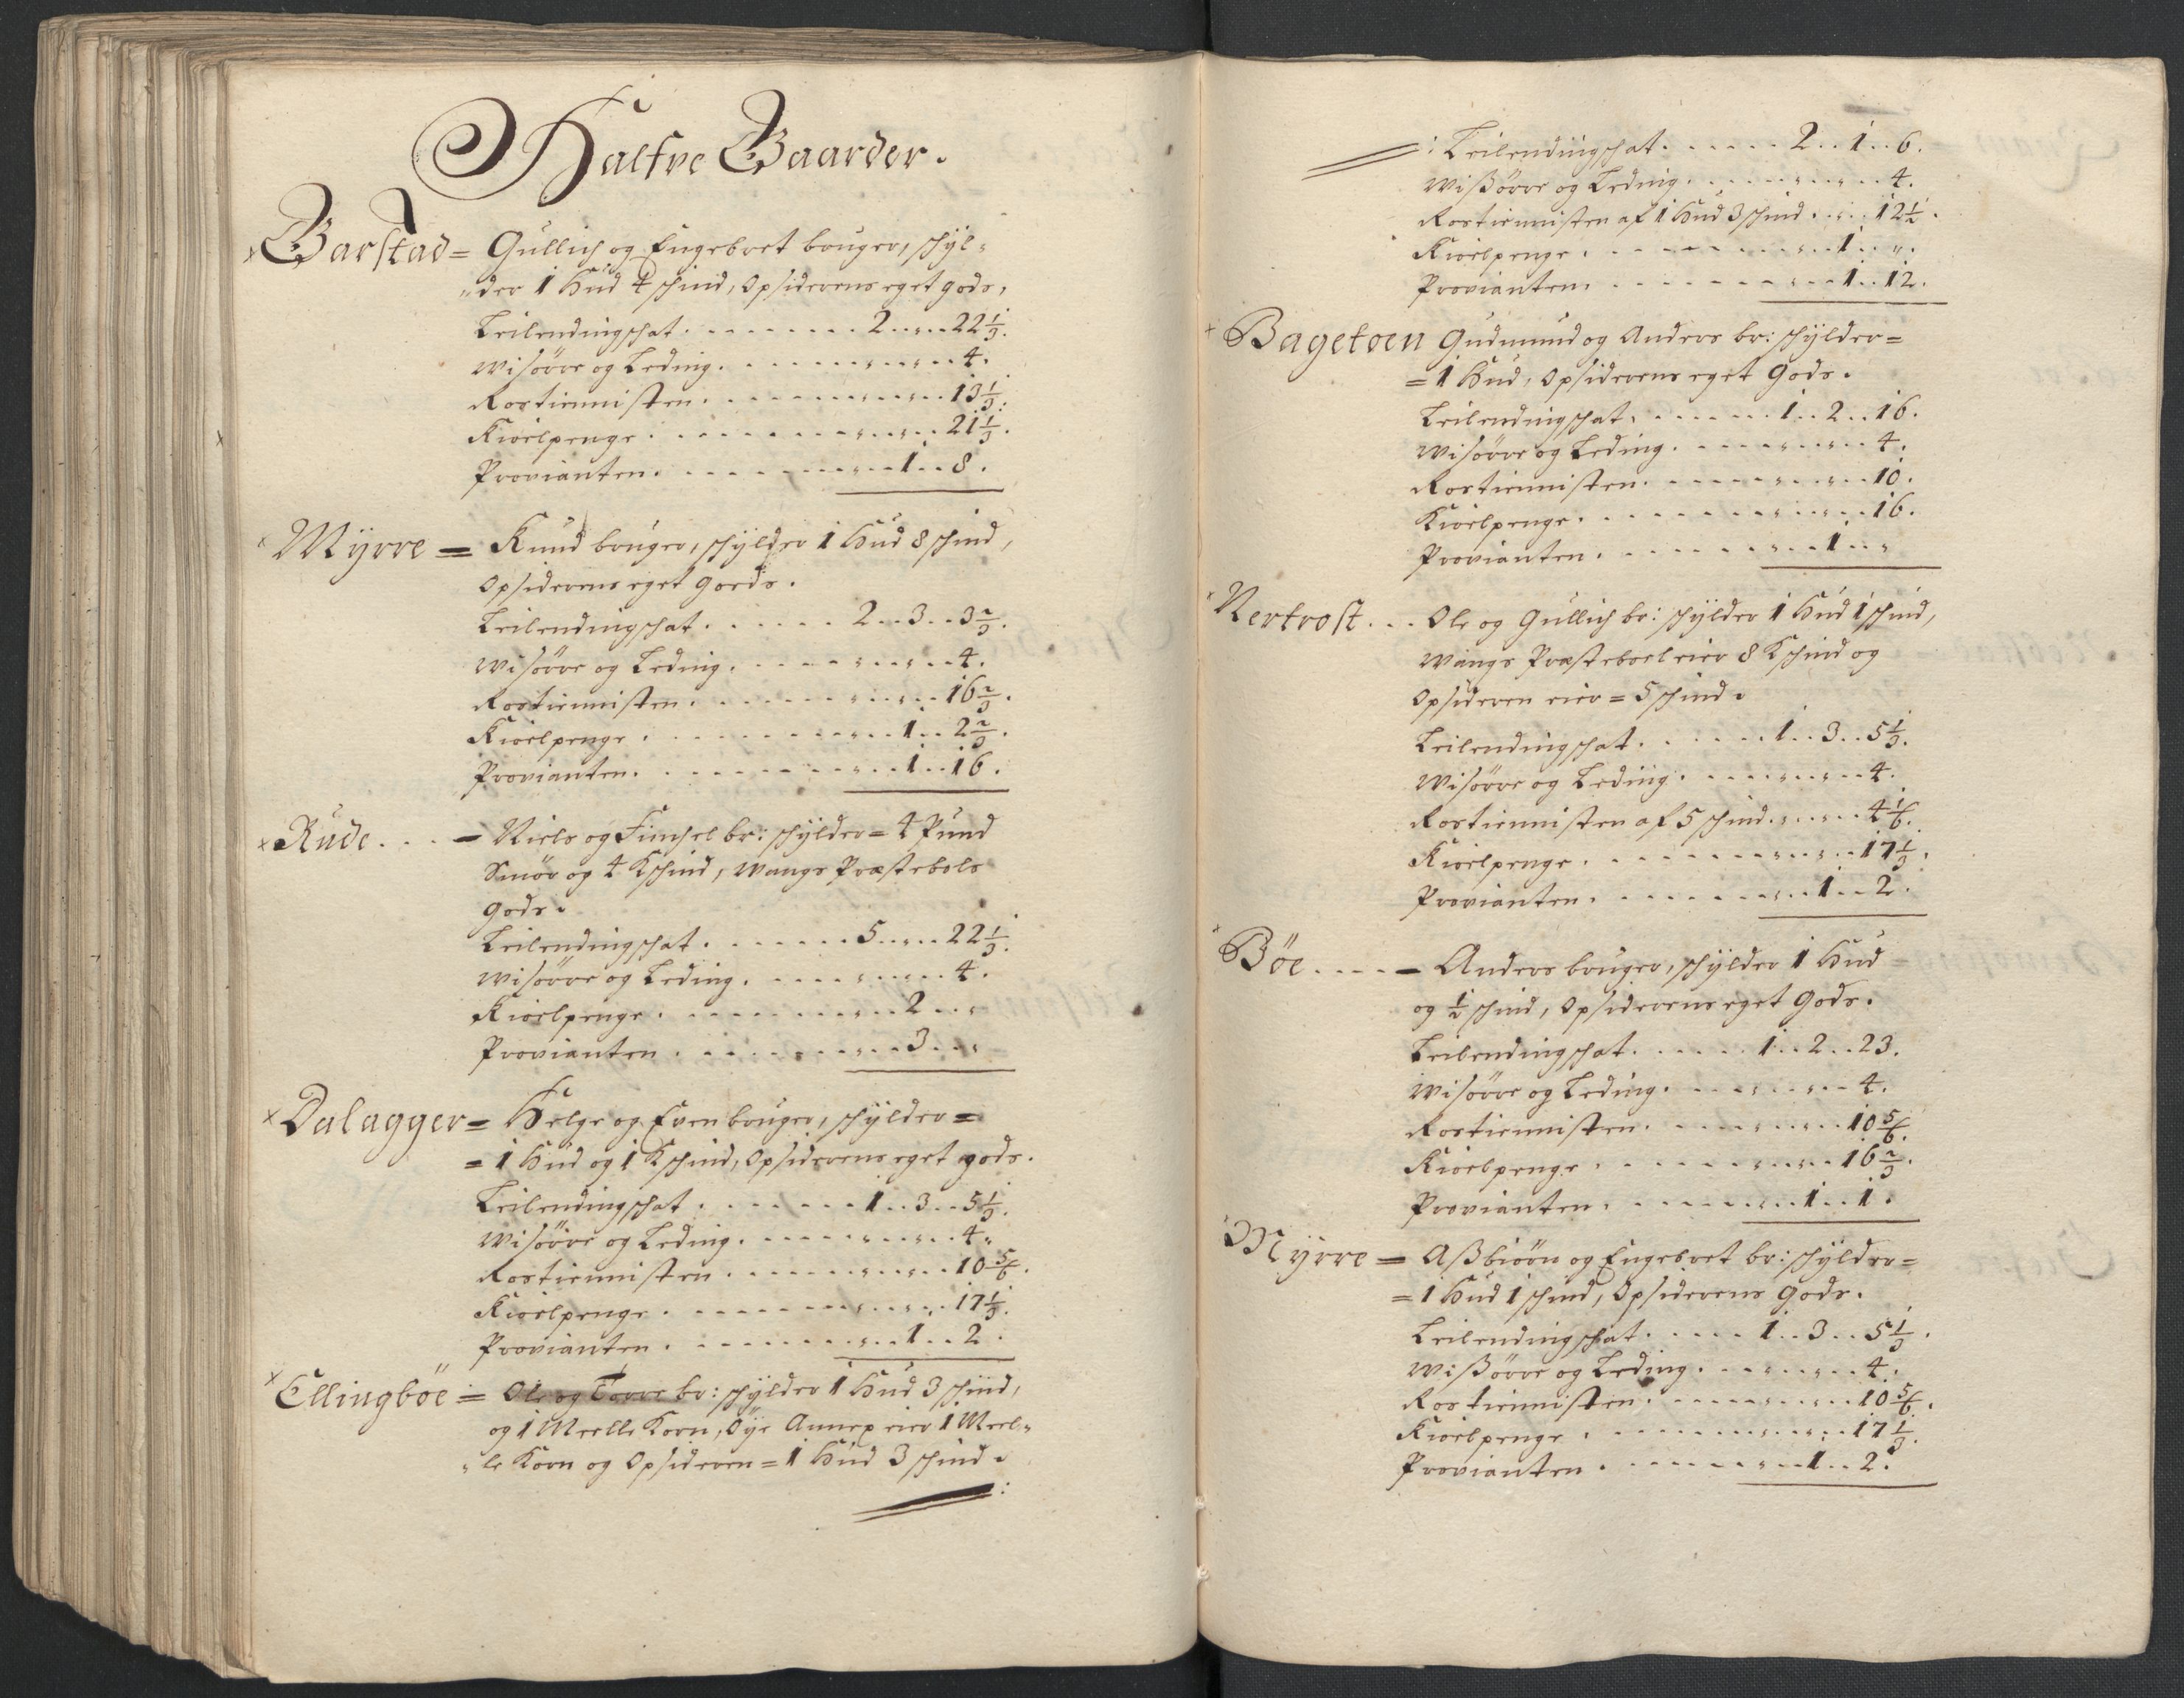 Halfve Gaarder.
Garstad = Gullich og Engebret bruger, schÿl-
der 1 Hud 4 schind, Opsiderens eget gods,
Leilendingschat . . . . . . . . 2 .. „ .. 22 1/3.
Wisørre og Leding . . . . . . „ .. „ .. 4.
Rostiennisten . . . . . . . . „ .. „ .. 13 1/3.
Kiørlpenge . . . . . . . . „ .. „ .. 21 1/3.
Provianten . . . . . . . . „ .. 1 .. 8.
Mÿrre = Knud bruger, schÿlder 1 Hud 8 schind,
Opsiderens eget Goeds.
Leilendingschat . . . . . . 2 .. 3 .. 3 2/3.
Wisørre og Leding . . . . . . „ .. „ .. 4.
Rostiennisten . . . . . . . . „ .. „ .. 16 2/3.
Kiørlpenge . . . . . . . . „ .. 1 .. 2 2/3.
Provianten . . . . . . . . „ .. 1 .. 16.
Rude . . . = Niels og br: schÿlder = 4 Pund
Smør og 4 Kschind, Wangs Præstebols
Gods.
Leilendingschat . . . . . . . 5 .. „ .. 22 1/3.
Wisørre og Leding . . . . . . „ .. „ .. 4.
Kiørlpenge . . . . . . . . „ .. 2 .. „
Provianten . . . . . . . . „ .. 3 .. „
Dalagger = Helge og Even bruger, schÿlder =
= 1 Hud og 1 Kschind, Opsiderens eget gods.
Leilendingschat . . . . . . . 1 .. 3 .. 5 1/3.
Wisørre og Leding . . . . . . „ .. „ .. 4 „
Rostiennisten . . . . . . . „ .. „ .. 10 5/6.
Kiørlpenge . . . . . . . . „ .. „ .. 17 1/3.
Provianten . . . . . . . . „ .. 1 .. 2.
Ellingbøe = Ole og Torre br: schÿlder 1 Hud 3 schind,
og 1 Meelle Korn, Øÿe Annex eier 1 Meel-
le Korn og Opsideren = 1 Hud 3 schind.
: Leilendingschat . . . . . . 2 .. 1 .. 6.
Wißørre og Leding . . . . . „ .. „ .. 4.
Rostiennisten af 1 Hud 3 schind . . „ .. 12 1/2.
Kiørlpenge . . . . . . . . „ .. 1 .. „.
Provianten . . . . . . . . „ .. 1 .. 12.
Bagetoen Gudmund og Anders br: schÿlder =
= 1 Hud, Opsiderens eget Gods.
Leilendingschat . . . . . . 1 .. 2 .. 16.
Wisørre og Leding . . . . . „ .. „ .. 4.
Rostiennisten . . . . . . . „ .. „ .. 10.
Kiørlpenge . . . . . . . . „ .. „ .. 16.
Provianten . . . . . . . . „ .. 1 .. „
Nertrost . . . Ole og Gullich br: schÿlder 1 Hud 1 schind,
Wangs Præsteboel eier 8 Kschind og
Opsideren eier = 5 schind.
Leilendingschat . . . . . . 1 .. 3 .. 5 1/3.
Wisørre og Leding . . . . . „ .. „ .. 4.
Rostiennisten af 5 schind . „ .. „ .. 4 1/6.
Kiørlpenge . . . . . . . . „ .. „ .. 17 1/3.
Provianten . . . . . . . . „ .. 1 .. 2.
Bøe . . . . = Anders bruger, schÿlder 1 Hud
og 1/2 schind, Opsiderens eget Gods.
Leilendingschat . . . . . 1 .. 2 .. 23.
Wisørre og Leding . . . . . „ .. „ .. 4.
Rostiennisten . . . . . . . „ .. „ .. 10 5/6.
Kiørlpenge . . . . . . . . „ .. „ .. 16 2/3.
Provianten . . . . . . . . „ .. 1 .. 1.
Mÿrre = Aßbiørn og Engebret br: schÿlder =
= 1 Hud 1 schind, Opsiderens Gods.
Leilendingschat . . . . . 1 .. 3 .. 5 1/3.
Wißørre og Leding . . . . . „ .. „ .. 4.
Rostiennisten . . . . . . . „ .. „ .. 10 5/6.
Kiørlpenge . . . . . . . . „ .. „ .. 17 1/3.
Provianten . . . . . . . . „ .. 1 .. 2.